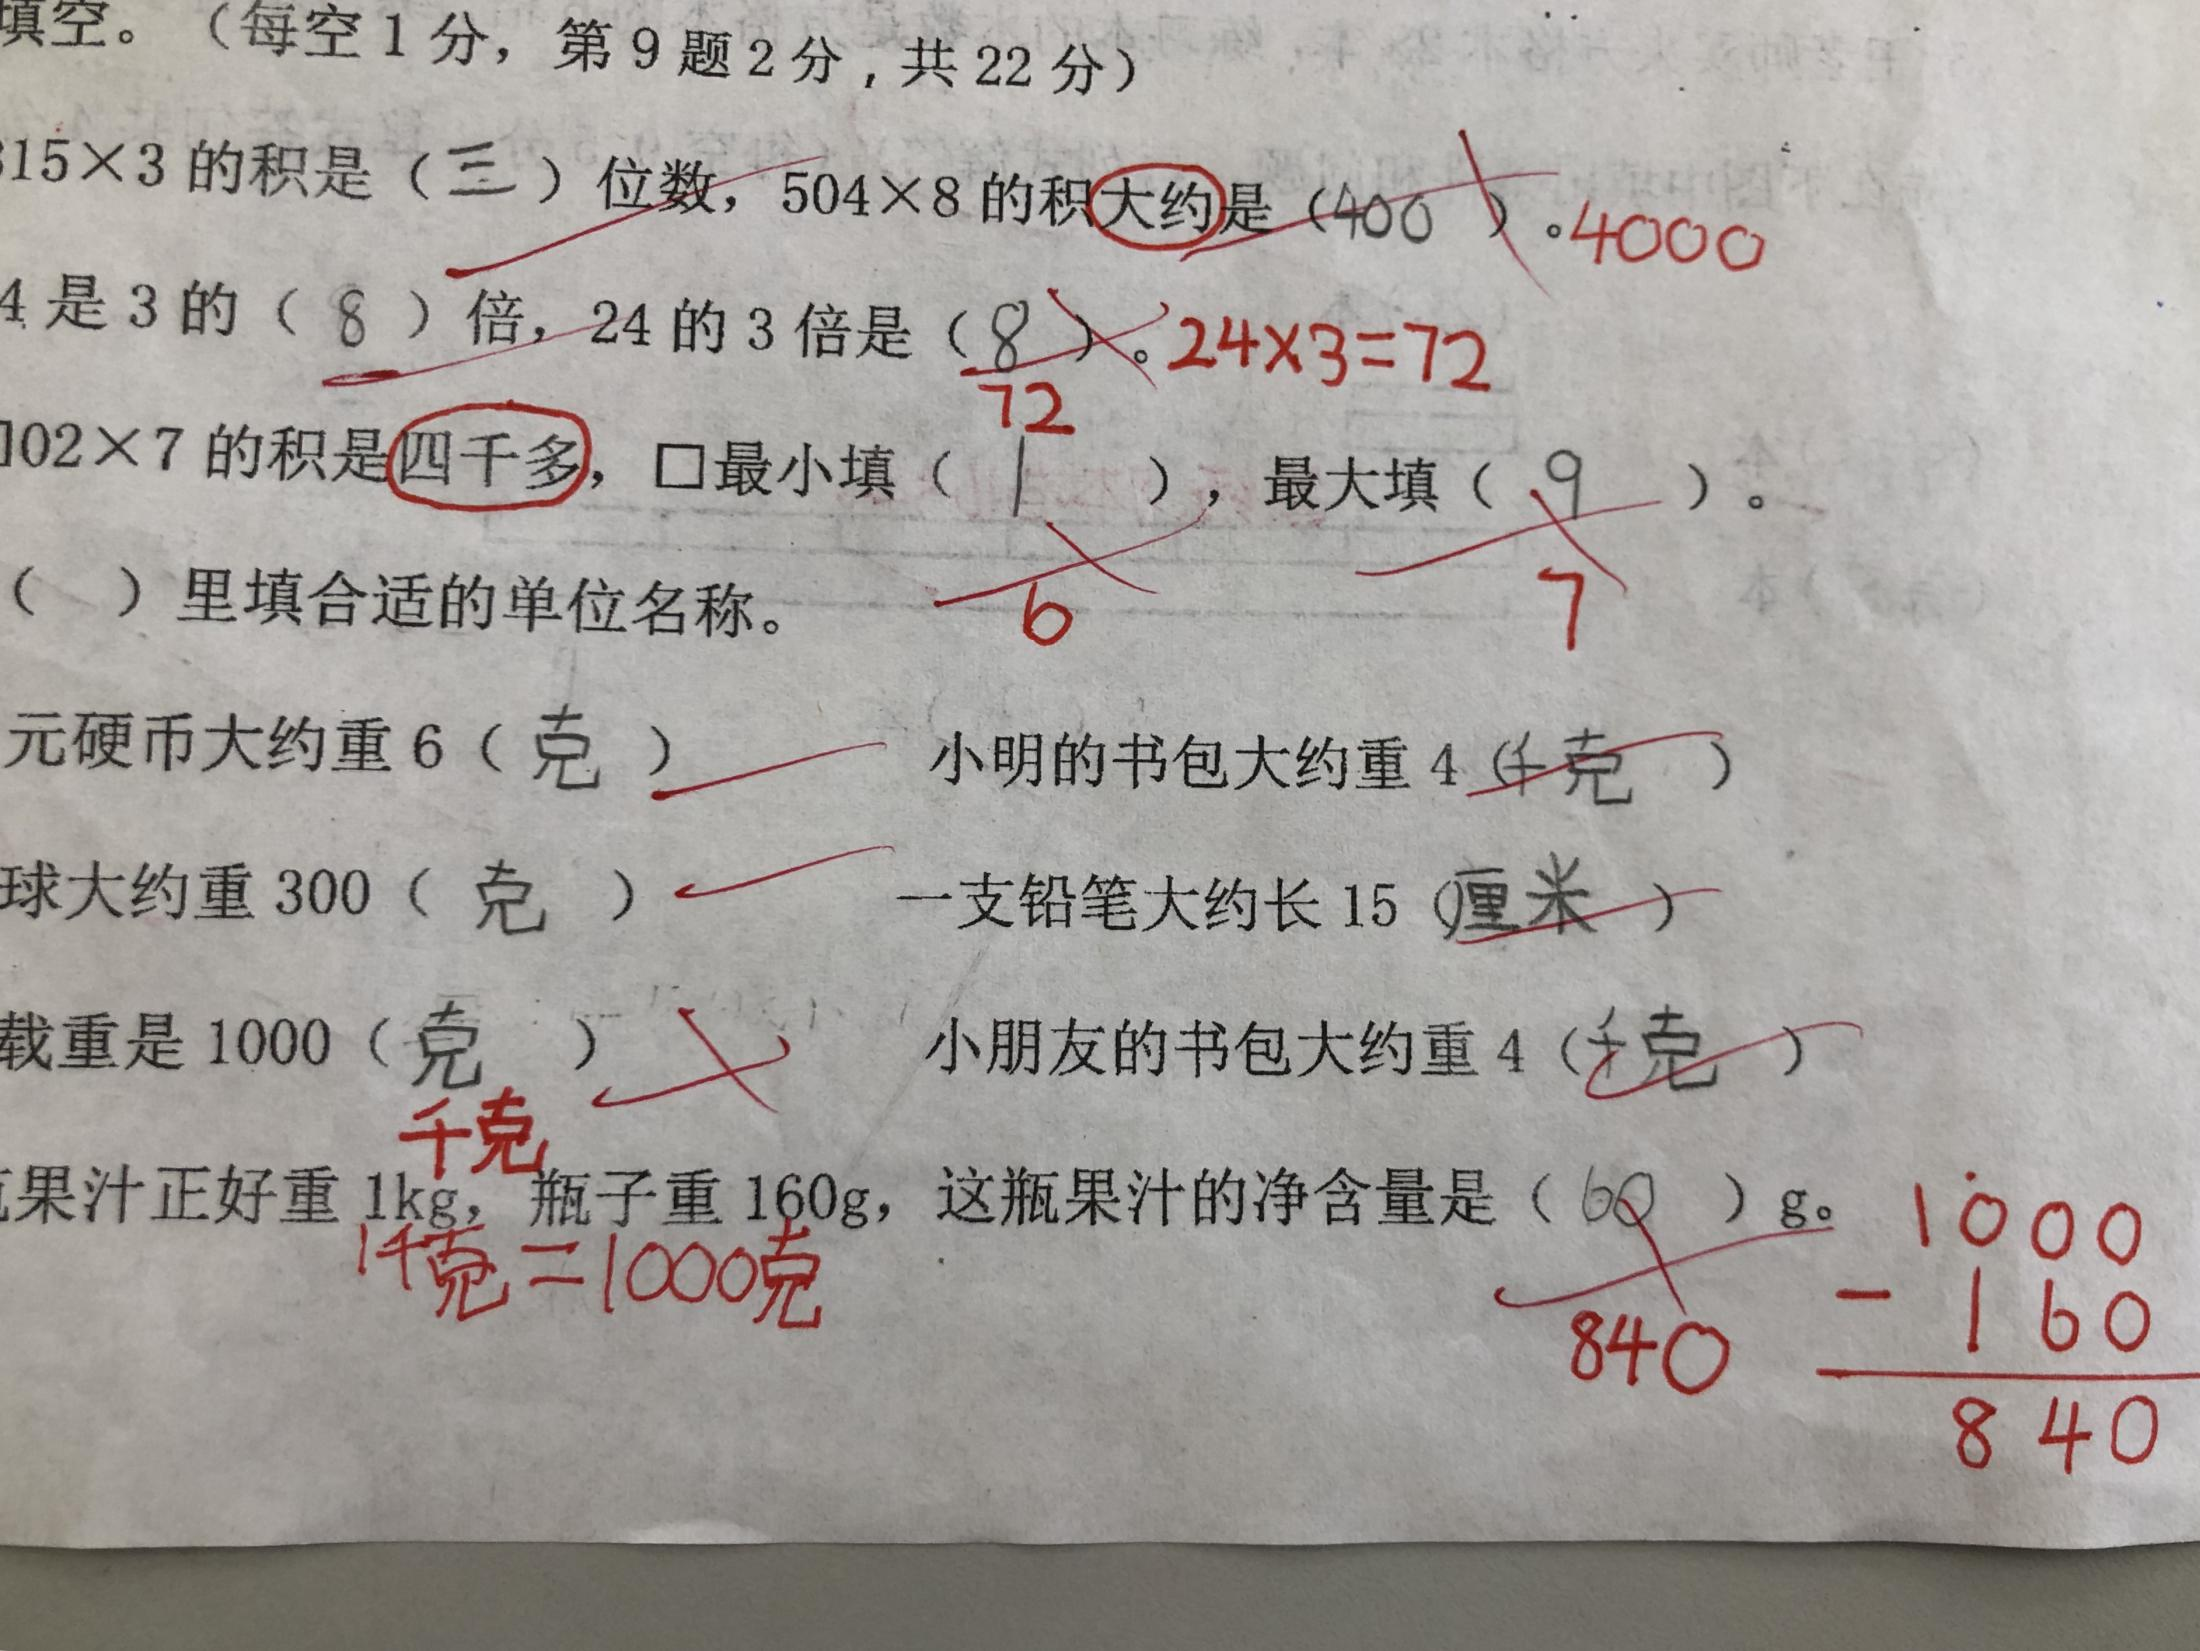 填空。（每空1分，第9题2分，共22分）
315×3的积是（三）位数，504×8的积大约是（400）。4000
4是3的（8）倍，24的3倍是（8）。24×3=72
72
□02×7的积是四千多，□最小填（1），最大填（9）。
6 7
（ ）里填合适的单位名称。
元硬币大约重6（克） 小明的书包大约重4（千克）
球大约重300（克） 一支铅笔大约长15（厘米）
载重是1000（克） 小朋友的书包大约重4（千克）
千克
瓶果汁正好重1kg，瓶子重160g，这瓶果汁的净含量是（60）g。
1千克=1000克
840
1000
- 160
840